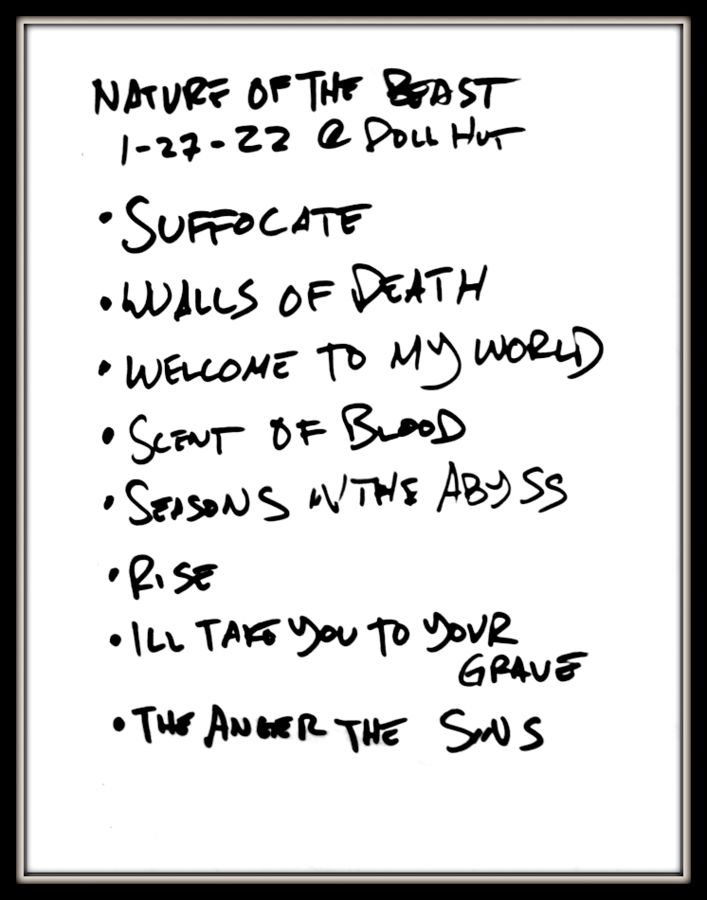 NATURE OF THE BEAST
1-27-22 @ DOLL HUT
• SUFFOCATE
• WALLS OF DEATH
• WELCOME TO MY WORLD
• SCENT OF BLOOD
• SEASONS IN THE ABYSS
• RISE
• ILL TAKE YOU TO YOUR
GRAVE
• THE ANGER THE SINS